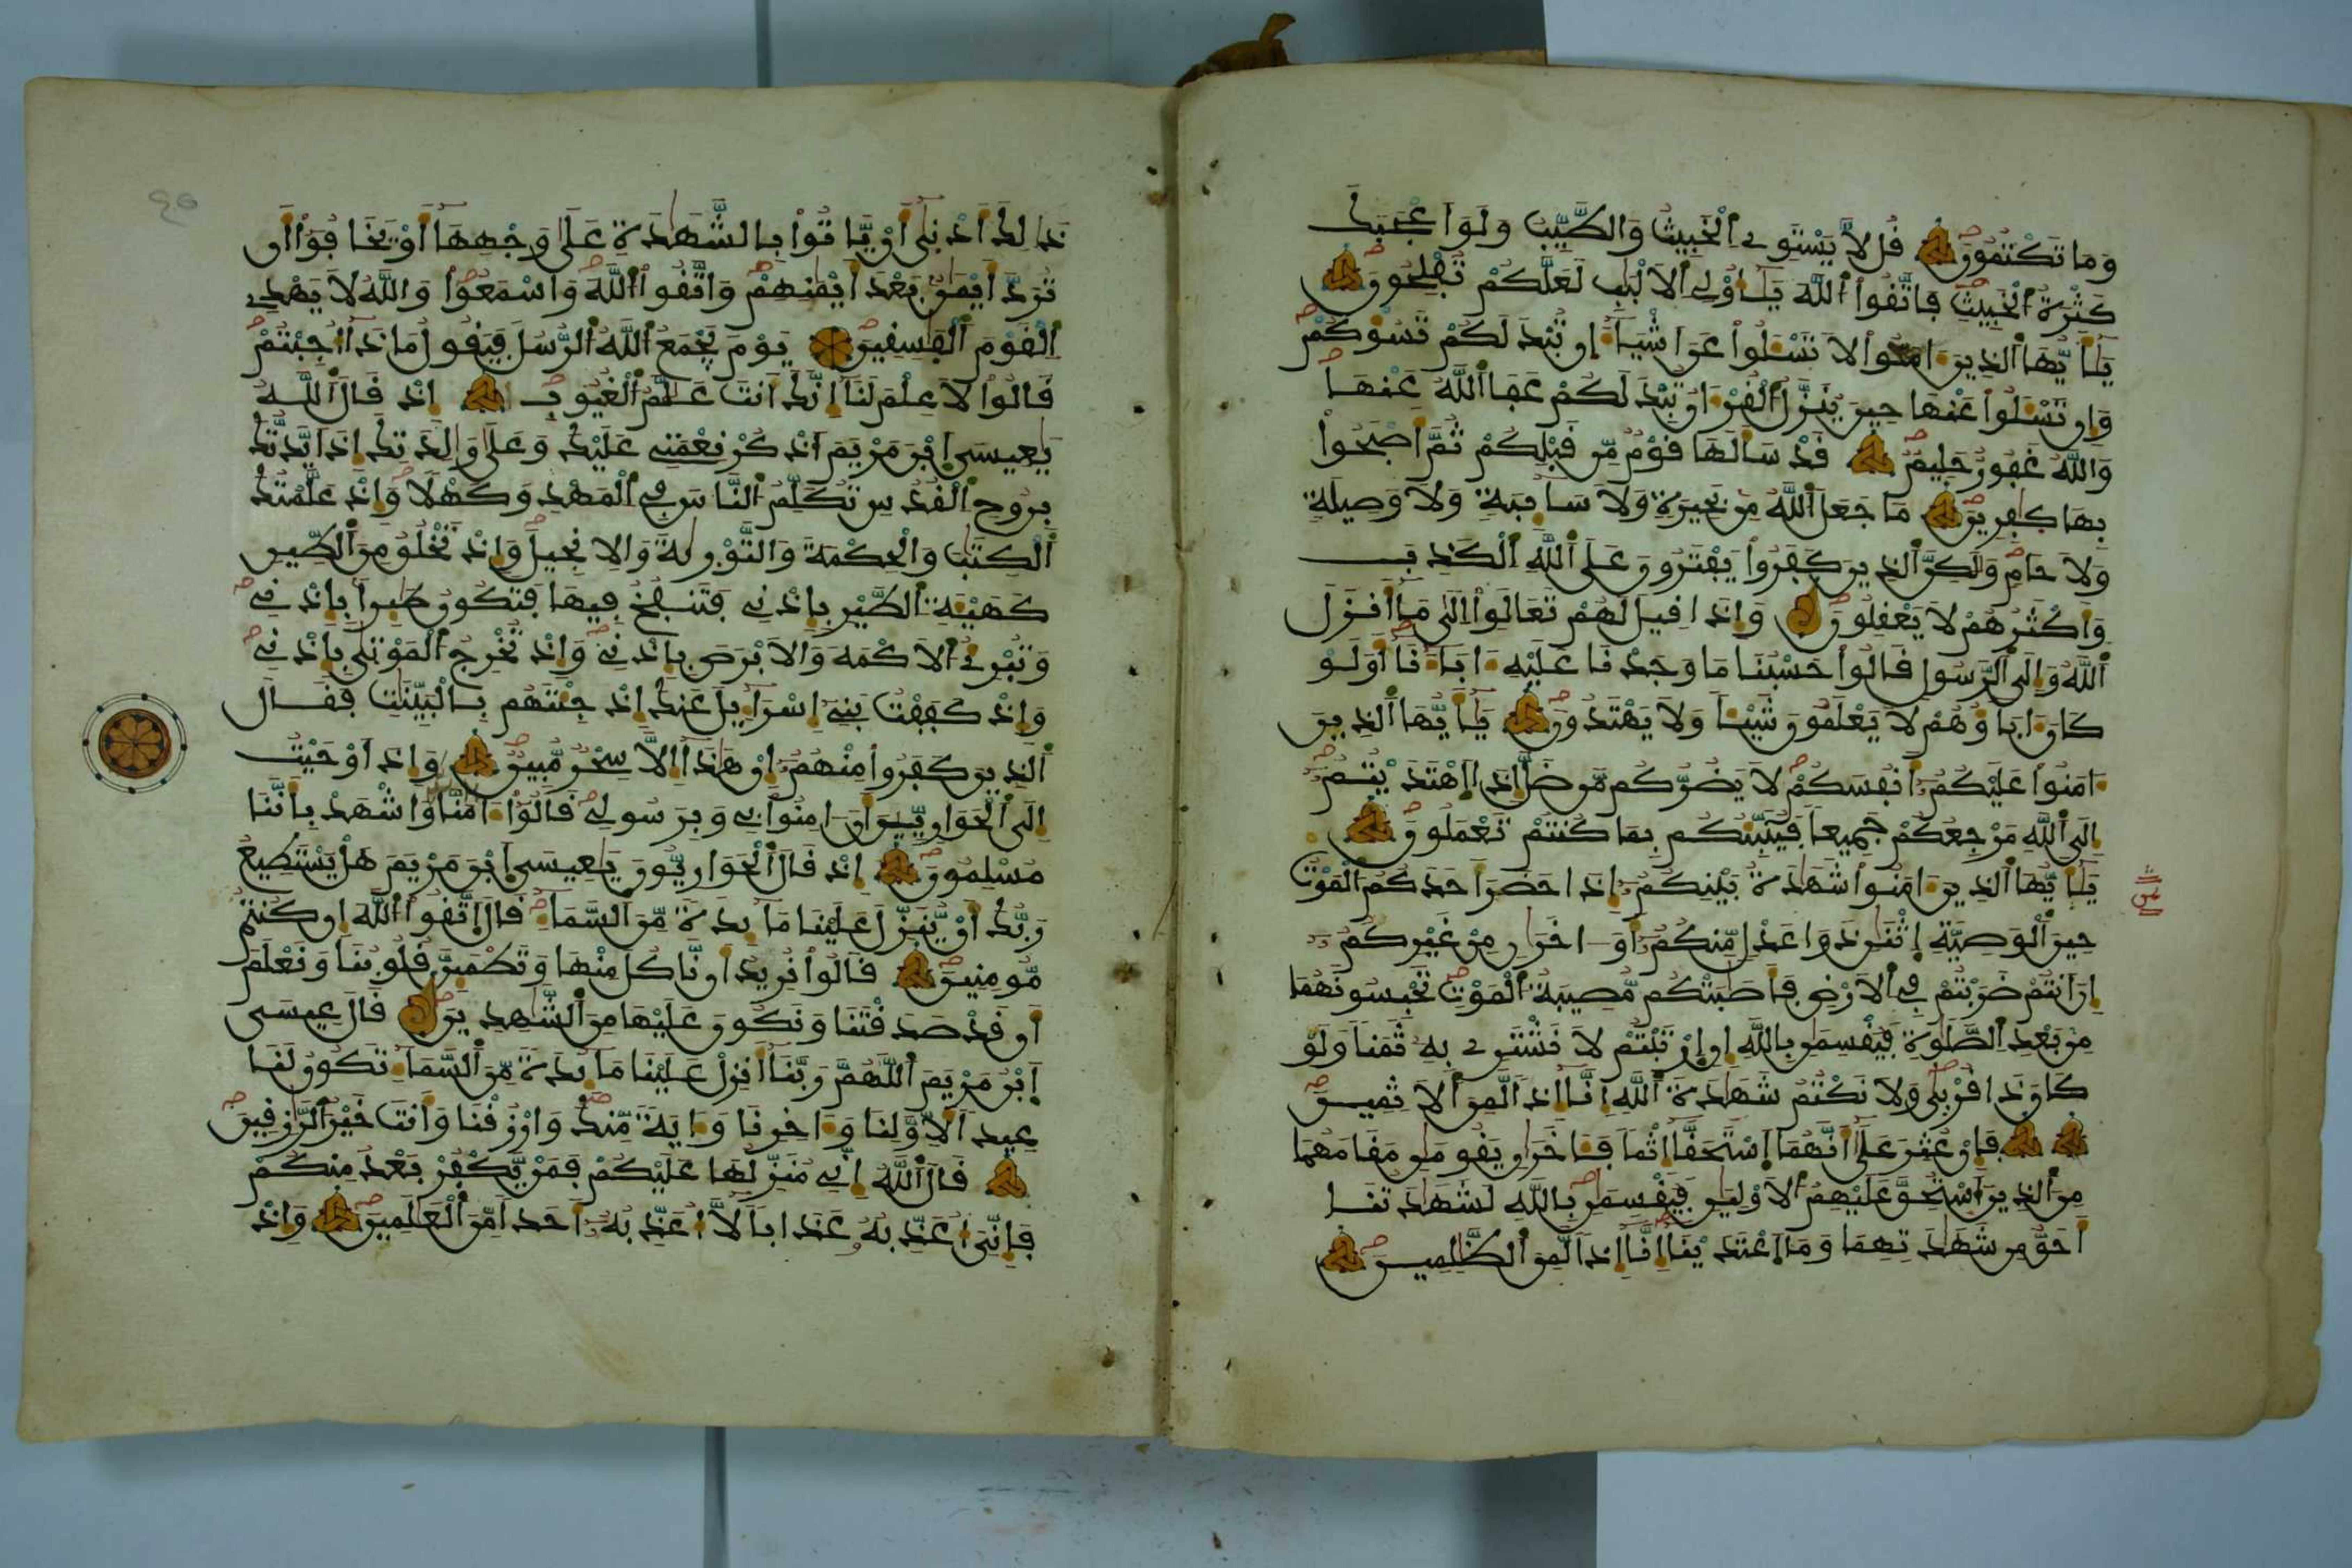 وَمَا تَكْتُمُونَ قُل لَّا يَسْتَوِے اِ۬لْخَبِيثُ وَالطَّيِّبُ وَلَوَ اَعْجَبَكَ
كَثْرَةُ اُ۬لْخَبِيثِ فَاتَّقُواْ اُ۬للَّهَ يَٰٓأُوْلِے اِ۬لَالْبَٰبِ لَعَلَّكُمْ تُفْلِحُونَ
يَٰٓأَيُّهَا اَ۬لذِينَ ءَامَنُواْ لَا تَسْـَٔلُواْ عَنَ اَشْيَآءَ ان تُبْدَ لَكُمْ تَسُؤْكُمْ
وَإِن تَسْـَٔلُواْ عَنْهَا حِينَ يُنَزَّلُ اُ۬لْقُرْءَانُ تُبْدَ لَكُمْ عَفَا اَ۬للَّهُ عَنْهَا
وَاللَّهُ غَفُورٌ حَلِيمٌ قَدْ سَأَلَهَا قَوْمٌ مِّن قَبْلِكُمْ ثُمَّ أَصْبَحُواْ
بِهَا كٰفِرِينَ مَا جَعَلَ اَ۬للَّهُ مِنۢ بَحِيرَةٍ وَلَا سَآئِبَةٍ وَلَا وَصِيلَةٍ
وَلَا حَامٍ وَلَٰكِنَّ اَ۬لذِينَ كَفَرُواْ يَفْتَرُونَ عَلَى اَ۬للَّهِ اِ۬لْكَذِبَ
وَأَكْثَرُهُمْ لَا يَعْقِلُونَ وَإِذَا قِيلَ لَهُمْ تَعَالَوِاْ اِلَىٰ مَآ أَنزَلَ
اَ۬للَّهُ وَإِلَى اَ۬لرَّسُولِ قَالُواْ حَسْبُنَا مَا وَجَدْنَا عَلَيْهِ ءَابَآءَنَآ أَوَلَوْ
كَانَ ءَابَآؤُهُمْ لَا يَعْلَمُونَ شَيْـٔاً وَلَا يَهْتَدُونَ يَٰٓأَيُّهَا اَ۬لذِينَ
ءَامَنُواْ عَلَيْكُمُۥٓ أَنفُسَكُمْ لَا يَضُرُّكُم مَّن ضَلَّ إِذَا اَ۪هْتَدَيْتُمُۥٓ
إِلَى اَ۬للَّهِ مَرْجِعُكُمْ جَمِيعاً فَيُنَبِّئُكُم بِمَا كُنتُمْ تَعْمَلُونَ
يَٰٓأَيُّهَا اَ۬لذِينَ ءَامَنُواْ شَهَٰدَةُ بَيْنِكُمُۥٓ إِذَا حَضَرَ أَحَدَكُمُ اُ۬لْمَوْتُ
حِينَ اَ۬لْوَصِيَّةِ اِ۪ثْنَٰنِ ذَوَا عَدْلٍ مِّنكُمُۥٓ أَوَ اٰخَرَٰنِ مِنْ غَيْرِكُمُۥٓ
إِنَ اَنتُمْ ضَرَبْتُمْ فِے اِ۬لَارْضِ فَأَصَٰبَتْكُم مُّصِيبَةُ اُ۬لْمَوْتِ تَحْبِسُونَهُمَا
مِنۢ بَعْدِ اِ۬لصَّلَوٰةِ فَيُقْسِمَٰنِ بِاللَّهِ إِنِ اِ۪رْتَبْتُمْ لَا نَشْتَرِے بِهِۦ ثَمَناً وَلَوْ
كَانَ ذَا قُرْبَىٰ وَلَا نَكْتُمُ شَهَٰدَةَ اَ۬للَّهِ إِنَّآ إِذاً لَّمِنَ اَ۬لَاثِمِينَ
فَإِنْ عُثِرَ عَلَىٰٓ أَنَّهُمَا اَ۪سْتَحَقَّآ إِثْماً فَـَٔاخَرَٰنِ يَقُومَٰنِ مَقَامَهُمَا
مِنَ اَ۬لذِينَ اَ۟سْتُحِقَّ عَلَيْهِمُ اُ۬لَاوْلَيَٰنِ فَيُقْسِمَٰنِ بِاللَّهِ لَشَهَٰدَتُنَآ
أَحَقُّ مِن شَهَٰدَتِهِمَا وَمَا اَ۪عْتَدَيْنَآ إِنَّآ إِذاً لَّمِنَ اَ۬لظَّٰلِمِينَ
ذَٰلِكَ أَدْنَىٰٓ أَنْ يَّاتُواْ بِالشَّهَٰدَةِ عَلَىٰ وَجْهِهَآ أَوْ يَخَافُوٓاْ أَن
تُرَدَّ أَيْمَٰنٌۢ بَعْدَ أَيْمَٰنِهِمْ وَاتَّقُواْ اُ۬للَّهَ وَاسْمَعُواْ وَاللَّهُ لَا يَهْدِے
اِ۬لْقَوْمَ اَ۬لْفَٰسِقِينَ يَوْمَ يَجْمَعُ اُ۬للَّهُ اُ۬لرُّسُلَ فَيَقُولُ مَاذَآ أُجِبْتُمْ
قَالُواْ لَا عِلْمَ لَنَآ إِنَّكَ أَنتَ عَلَّٰمُ اُ۬لْغُيُوبِ إِذْ قَالَ اَ۬للَّهُ
يَٰعِيسَى اَ۪بْنَ مَرْيَمَ اَ۟ذْكُرْ نِعْمَتِے عَلَيْكَ وَعَلَىٰ وَٰلِدَتِكَ إِذَ اَيَّدتُّكَ
بِرُوحِ اِ۬لْقُدُسِ تُكَلِّمُ اُ۬لنَّاسَ فِے اِ۬لْمَهْدِ وَكَهْلاً وَإِذْ عَلَّمْتُكَ
اَ۬لْكِتَٰبَ وَالْحِكْمَةَ وَالتَّوْرَيٰةَ وَالِانجِيلَ وَإِذْ تَخْلُقُ مِنَ اَ۬لطِّينِ
كَهَيْـَٔةِ اِ۬لطَّيْرِ بِإِذْنِے فَتَنفُخُ فِيهَا فَتَكُونُ طَٰٓئِراَۢ بِإِذْنِے
وَتُبْرِئُ اُ۬لَاكْمَهَ وَالَابْرَصَ بِإِذْنِے وَإِذْ تُخْرِجُ اُ۬لْمَوْتَىٰ بِإِذْنِے
وَإِذْ كَفَفْتُ بَنِےٓ إِسْرَآءِيلَ عَنكَ إِذْ جِئْتَهُم بِالْبَيِّنَٰتِ فَقَالَ
اَ۬لذِينَ كَفَرُواْ مِنْهُمُۥٓ إِنْ هَٰذَآ إِلَّا سِحْرٌ مُّبِينٌ وَإِذَ اَوْحَيْتُ
إِلَى اَ۬لْحَوَارِيِّـۧنَ أَنَ اٰمِنُواْ بِے وَبِرَسُولِے قَالُوٓاْ ءَامَنَّا وَاشْهَدْ بِأَنَّنَا
مُسْلِمُونَ إِذْ قَالَ اَ۬لْحَوَارِيُّونَ يَٰعِيسَى اَ۪بْنَ مَرْيَمَ هَلْ يَسْتَطِيعُ
رَبُّكَ أَنْ يُّنَزِّلَ عَلَيْنَا مَآئِدَةً مِّنَ اَ۬لسَّمَآءِ قَالَ اَ۪تَّقُواْ اُ۬للَّهَ إِن كُنتُم
مُّومِنِينَ قَالُواْ نُرِيدُ أَن نَّاكُلَ مِنْهَا وَتَطْمَئِنَّ قُلُوبُنَا وَنَعْلَمَ
أَن قَدْ صَدَقْتَنَا وَنَكُونَ عَلَيْهَا مِنَ اَ۬لشَّٰهِدِينَ قَالَ عِيسَى
اَ۪بْنُ مَرْيَمَ اَ۬للَّهُمَّ رَبَّنَآ أَنزِلْ عَلَيْنَا مَآئِدَةً مِّنَ اَ۬لسَّمَآءِ تَكُونُ لَنَا
عِيداً لِّأَوَّلِنَا وَءَاخِرِنَا وَءَايَةً مِّنكَ وَارْزُقْنَا وَأَنتَ خَيْرُ اُ۬لرَّٰزِقِينَ
قَالَ اَ۬للَّهُ إِنِّے مُنَزِّلُهَا عَلَيْكُمْ فَمَنْ يَّكْفُرْ بَعْدُ مِنكُمْ
فَإِنِّيَ أُعَذِّبُهُۥ عَذَاباً لَّآ أُعَذِّبُهُۥٓ أَحَداً مِّنَ اَ۬لْعَٰلَمِينَ وَإِذْ